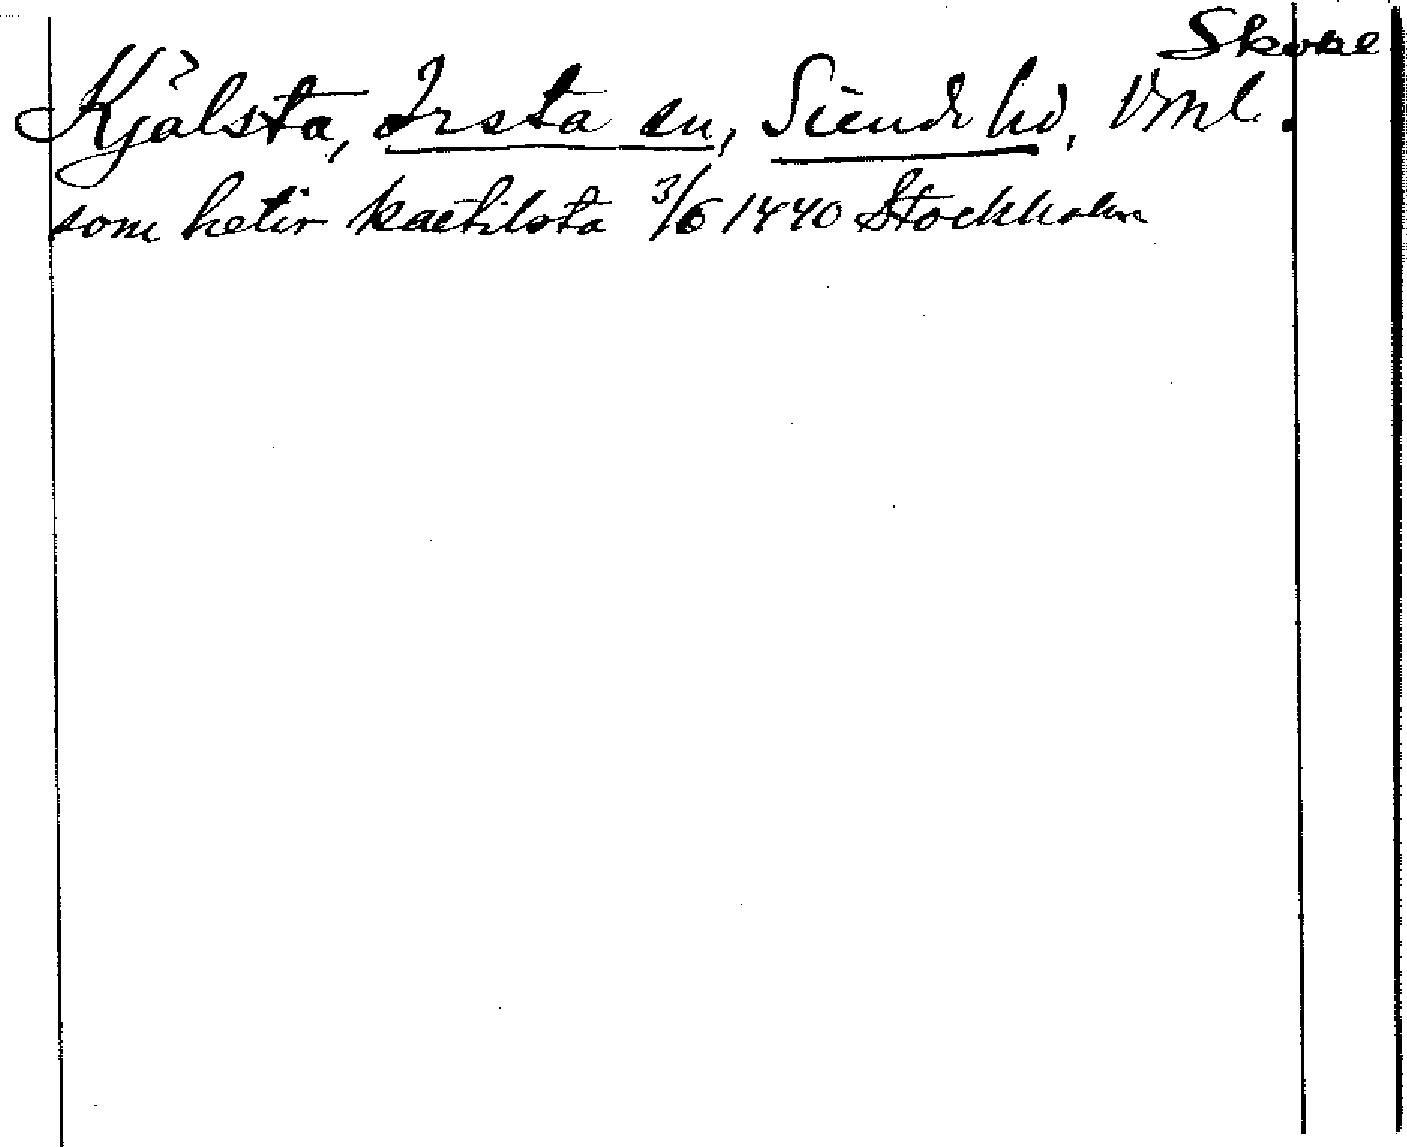 Skokl
Kjälsta, Irsta sn, Siende hd, Vml.
som hetir kaetilsta 3/6 1440 Stockholm